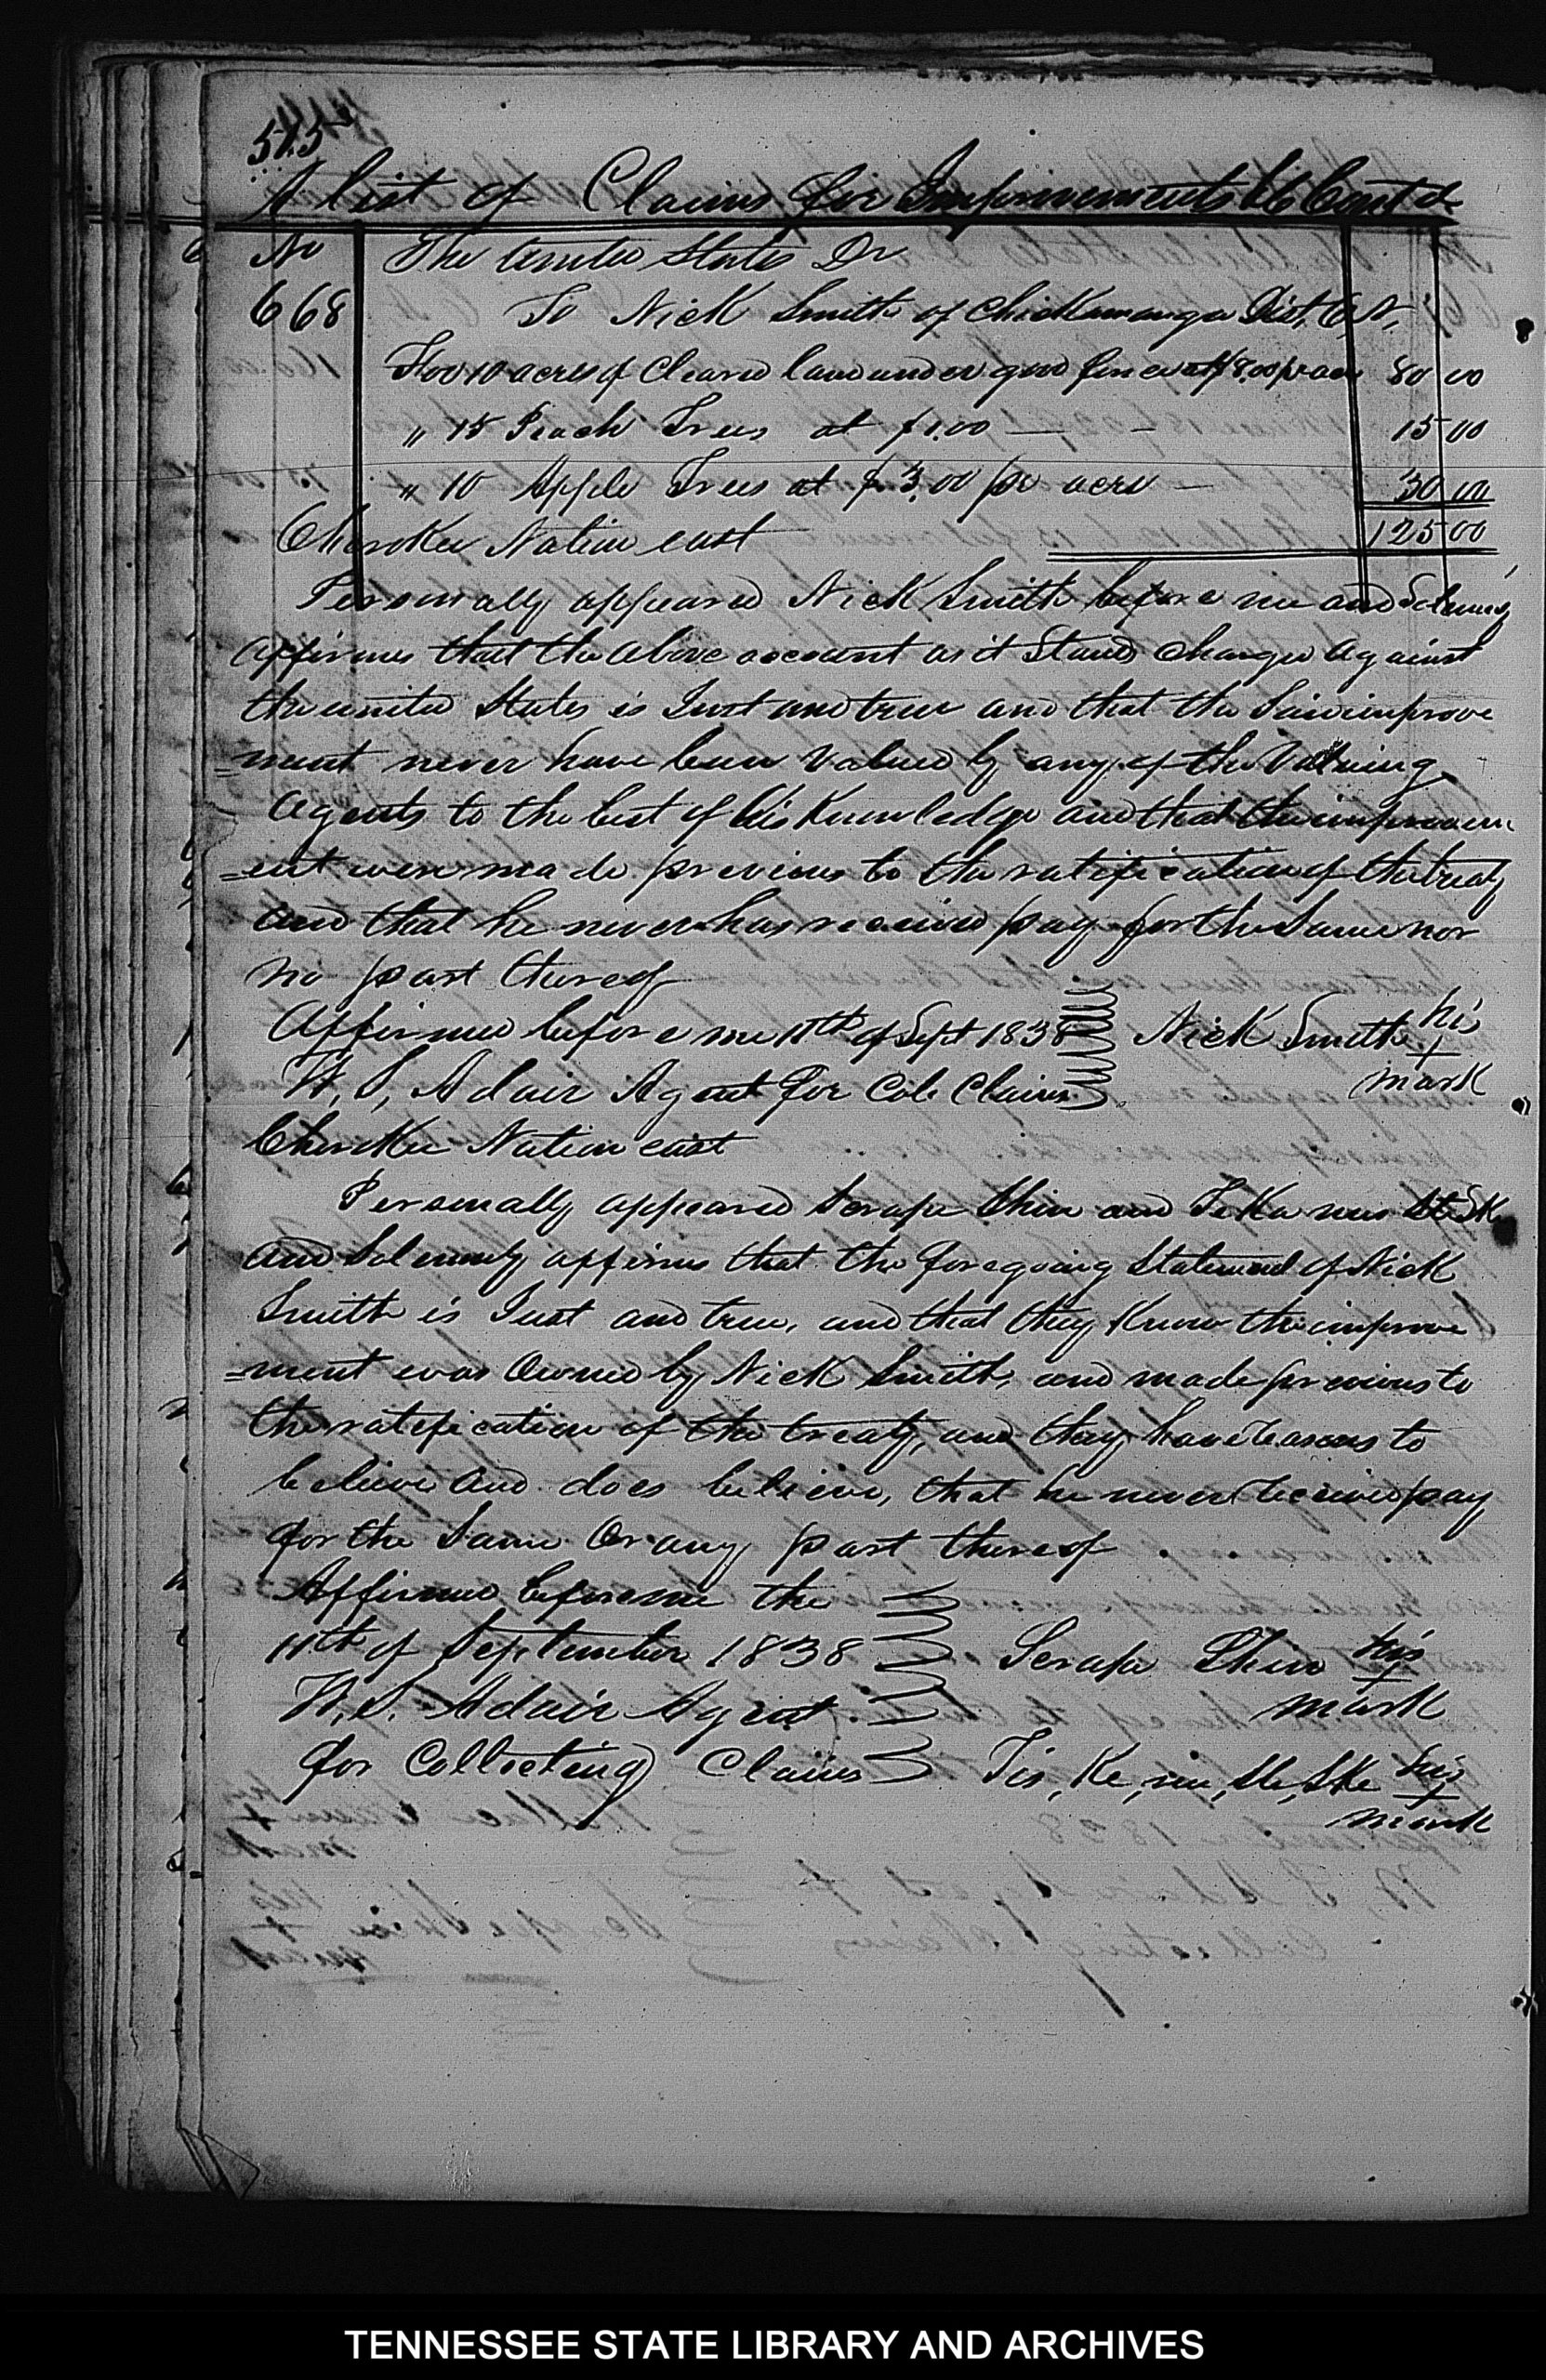 545
A list of Claims for Improvements &c Cont'd
No The United States Dr
668 To Nick Smith of Chickamauga Dist, C, N,
For 10 acres of Cleared land under good fence at $8.00 pr acre 80 00
" 15 Peach Trees at $1.00 — - 15 00
" 10 Apple Trees at $3.00 pr acre — 30 00
Cherokee Nation east 125 00
Personally appeared Nick Smith before me and Solemnly
affirmes that the above account as it Stands Charged against
the united States is Just and true and that the Said improve
=ment never have been Valued by any of the Valueing
Agents to the best of his Knowledge and that the improvem
=ent were made previous to the ratification of the treaty
and that he never has received pay for the Same nor
no part thereof
Affirmed before me 11th of Sept 1838 Nick Smith his
W, S, Adair Agent For Cole Claims x mark
Cherokee Nation east
Personally appeared Scrape Shin and
and Solemnly affirms that the foregoing Statement of Nick
Smith is Just and true, and that they Know the improve
=ment was Owned by Nick Smith, and made previous to
the ratification of the treaty, and they have reasons to
believe and does believe, that he never received pay
for the Same Or any part thereof.
Affirmed before me the
11th of September 1838 Scrape Shin his
W, S. Adair Agent x mark
for Collecting Claims Tis, Ke, nu, Ste, Ske his
x
mark
TENNESSEE STATE LIBRARY AND ARCHIVES